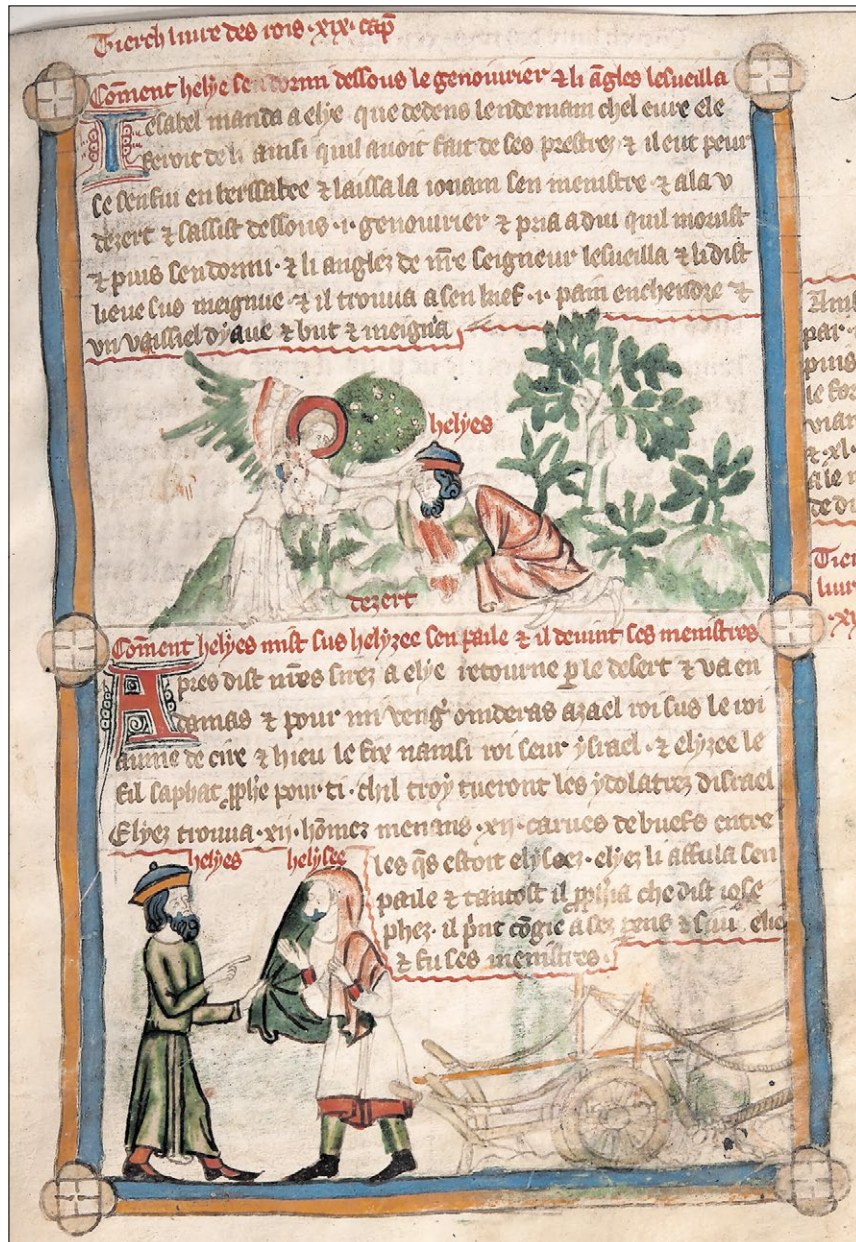 Tierch livre des rois · xix · cap̄
Co̅ment helye sendormi dessous le genouvrier ⁊ li a̅gles lesveilla
Iesabel manda a elye que dedens lendemain chel eure ele
feroit de li ainsi quil avoit fait de ses prestrez ⁊ il eut peur
se senfui en berssabee ⁊ laissa la ionam sen menistre ⁊ ala v
dezert ⁊ sassist dessous · i · genouvrier ⁊ pria a diu quil morust
⁊ puis sendormi · ⁊ li anglez de nr̅e seigneur lesveilla ⁊ li dist
lieve sus meignue · ⁊ il trouva a sen kief · i · pain enchendre ⁊
vn vaissiel dyaue ⁊ but ⁊ meigna
helyes
dezert
Co̅ment helyes mist sus helyzee sen paile ⁊ il devint ses menistres
Apres dist nr̅es sirez a elye retourne p̱ le desert ⁊ va en
damas ⁊ pour mi oinderas azael roi sus le roi
aume de cire ⁊ hieu le fix namsi roi seur ysrael · ⁊ elyzee le
fil saphat pour ti · chil troy tueront les ydolatrez disrael
Elyez trouva · xij · ho̅mez menans · xij · carues de buefs entre
helyes helysee
les q̄s estoit elyseez · elyez li affula sen
paile ⁊ tantost il che dist iose
phez · il prist co̅gie a sez gens ⁊ elie
⁊ fu ses menistres ·
par ·
puis
de di
Tier
livr
· xx